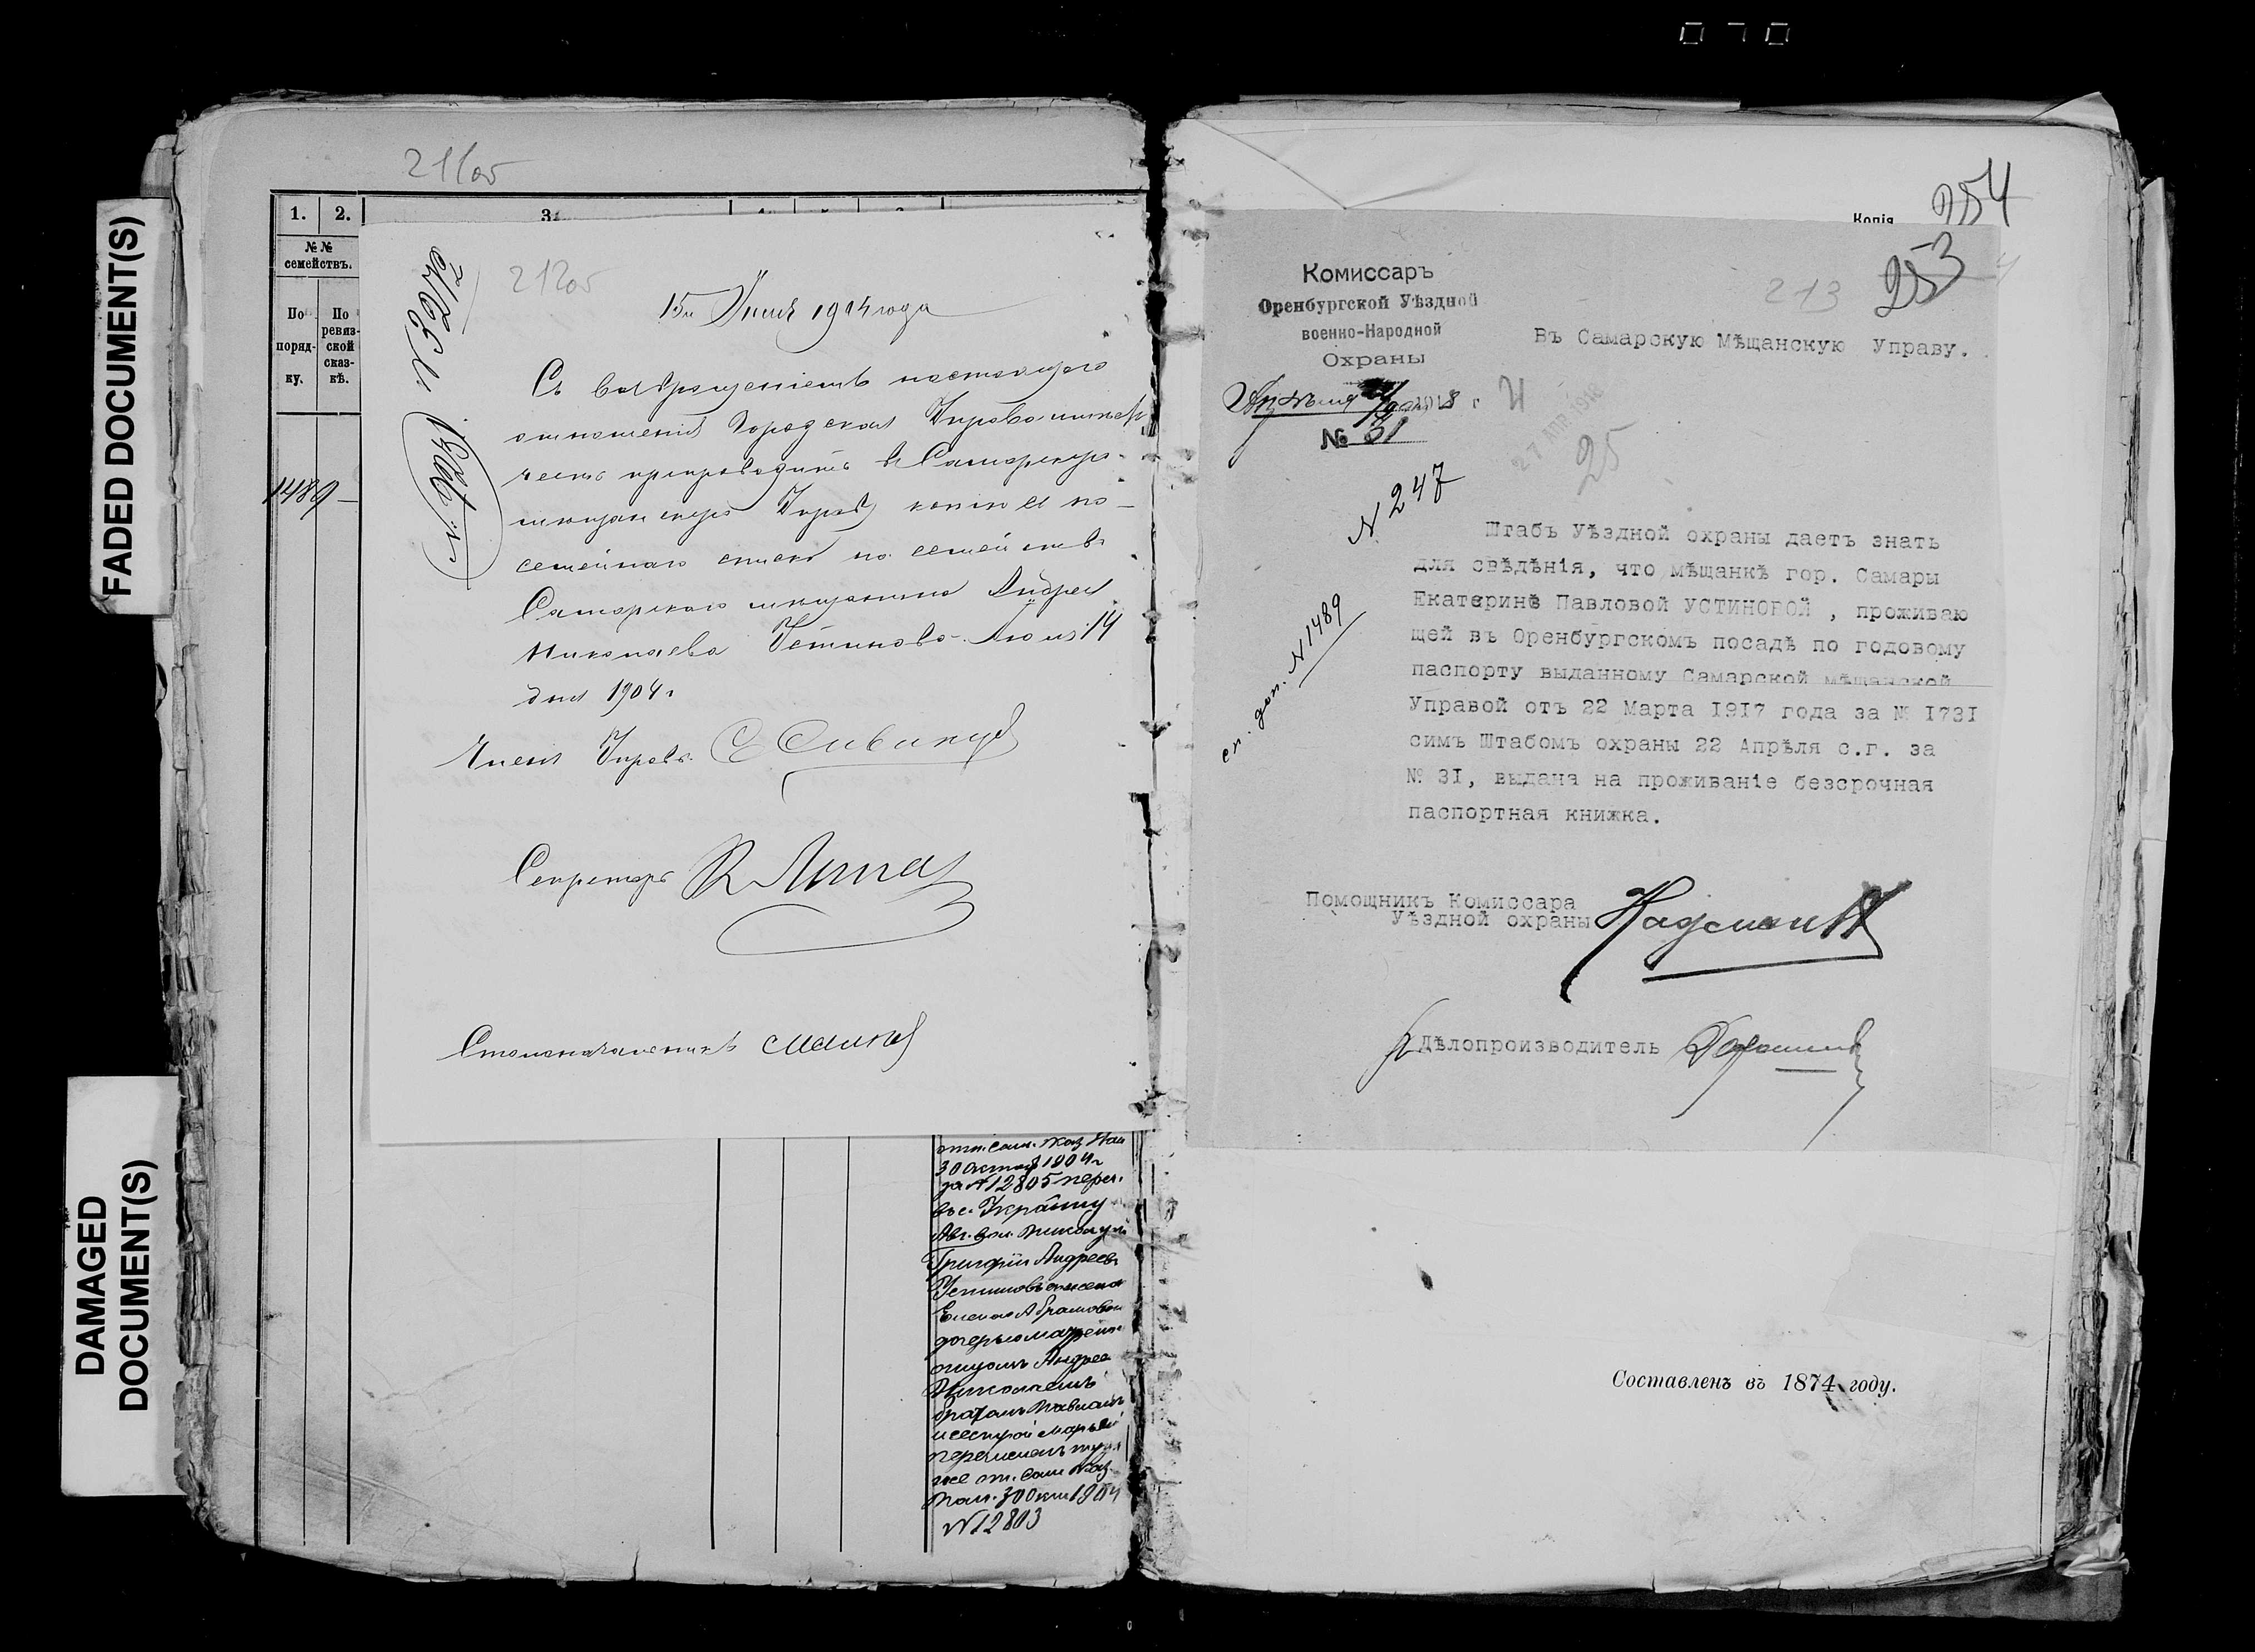 070
FADED DOCUMENT(S)
DAMAGED
DOCUMENT(S)
21 об
1. 2. 3.
№№
семействъ.
По
поряд-
ку.
По
ревиз-
ской
сказ-
кѣ.
1489 –
21 об
15 Июня 1904 года
Съ возвращеніемъ настоящаго
отношенія Городская Управа имѣетъ
честь препроводить въ Самарскую
мѣщанскую Управу копію съ по-
семейнаго списка на семейство
Самарскаго мѣщанина Андрея
Николаева Устинова. Июня 14
дня 1904 г
Членъ Управы
Секретарь
Столоначальникъ
30 Октяб 1904 г
за № 12805 переч.
въ с. Украинку
Григорій Андреевъ
Устиновъ съ женой
Еленой Абрамовой
дочерью Матреной
отцомъ Андреем
Николаевымъ
братомъ Павломъ
и сестрой Марьей
перечисленъ туда
же от. Сам Каз.
Пал. 30 Окт 1904
№ 12803
254
Копія
253
213
Комиссаръ
Оренбургской Уѣздной
военно-Народной
Охраны
Апрѣля 1918 г
№ 31
Въ Самарскую Мѣщанскую Управу.
27 АПР 1918
25
N 247
сп. доп. N 1489
Штабъ Уѣздной охраны даетъ знать
для свѣдѣнія, что мѣщанкѣ гор. Самары
Екатеринѣ Павловой УСТИНОВОЙ , проживаю
щей въ Оренбургскомъ посадѣ по годовому
паспорту выданному Самарской мѣщанской
Управой отъ 22 Марта 1917 года за № 1731
симъ Штабомъ охраны 22 Апрѣля с.г. за
№ 31, выдана на проживаніе безсрочная
паспортная книжка.
Помощникъ Комиссара
Уѣздной охраны
Дѣлопроизводитель
Составленъ въ 1874 году.